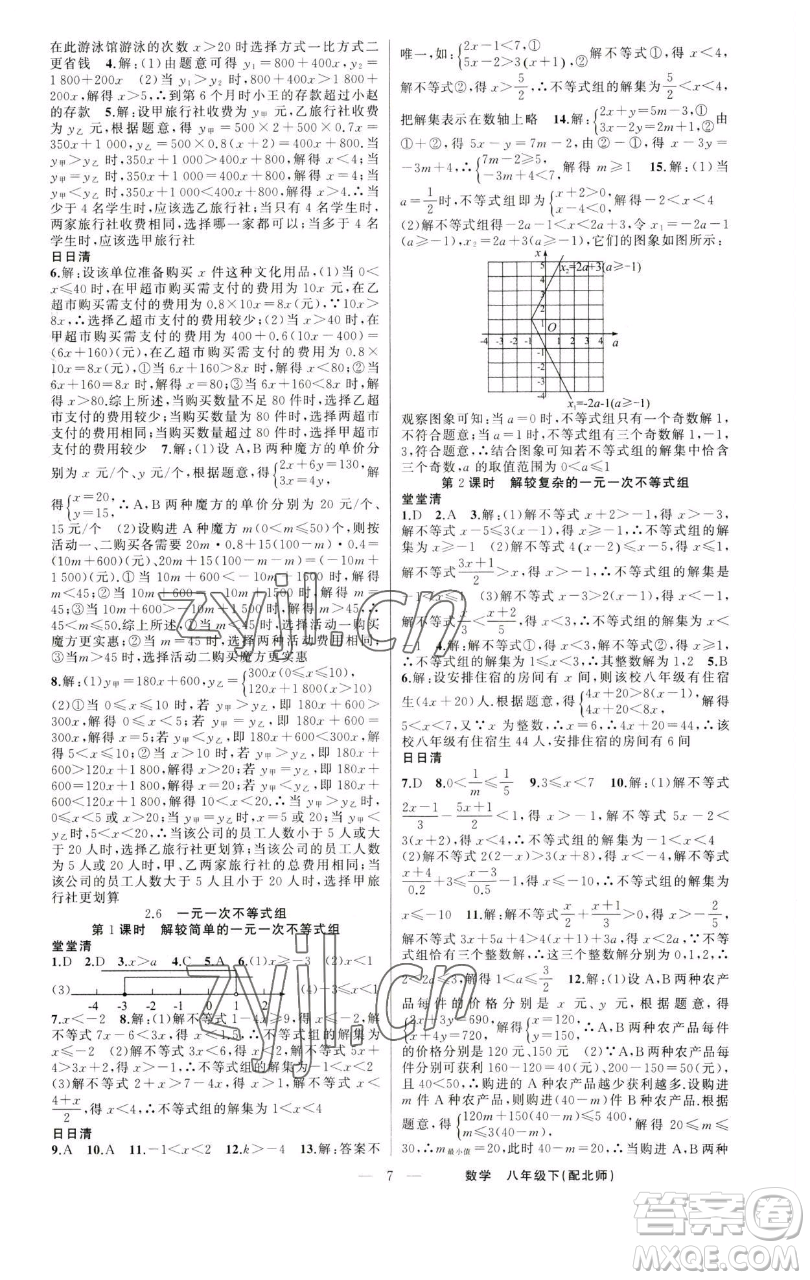 在此游泳馆游泳的次数 x>20 时选择方式一比方式二
更省钱 4.解:(1)由题意可得 y₁=800+400x,y₂=
1 800+200x (2)当 y₁>y₂ 时,800+400x>1 800+
200x,解得 x>5,∴到第 6 个月时小王的存款超过小赵
的存款 5.解:设甲旅行社收费为 y甲 元,乙旅行社收费
为 y乙 元,根据题意,得 y甲=500×2+500×0.7x=
350x+1 000,y乙=500×0.8(x+2)=400x+800,当
y甲>y乙 时,350x+1 000>400x+800,解得 x<4;当
y甲=y乙 时,350x+1 000=400x+800,解得 x=4;当
y甲<y乙 时,350x+1 000<400x+800,解得 x>4.∴当
少于 4 名学生时,应该选乙旅行社;当有 4 名学生时,
两家旅行社收费相同,选择哪一家都可以;当多于 4 名
学生时,应该选甲旅行社
日日清
6.解:设该单位准备购买 x 件这种文化用品,(1)当 0<
x≤40 时,在甲超市购买需支付的费用为 10x 元,在乙
超市购买需支付的费用为 0.8×10x=8x(元),∵10x>
8x,∴选择乙超市支付的费用较少;(2)当 x>40 时,在
甲超市购买需支付的费用为 400+0.6(10x-400)=
(6x+160)(元),在乙超市购买需支付的费用为 0.8×
10x=8x(元),①当 6x+160>8x 时,解得 x<80;②当
6x+160=8x 时,解得 x=80;③当 6x+160<8x 时,解
得 x>80.综上所述,当购买数量不足 80 件时,选择乙
超市支付的费用较少;当购买数量为 80 件时,选择两超
市支付的费用相同;当购买数量超过 80 件时,选择甲超
市支付的费用较少 7.解:(1)设 A,B 两种魔方的单价分
别为 x 元/个、y 元/个,根据题意,得{2x+6y=130,
3x=4y, 解得
{x=20,
y=15, ∴A,B 两种魔方的单价分别为 20 元/个、
15 元/个 (2)设购进 A 种魔方 m(0<m≤50)个,则按
活动一、二购买各需 20m·0.8+15(100-m)·0.4=
(10m+600)元,20m+15(100-m-m)=(-10m+
1 500)元.①当 10m+600<-10m+1 500 时,解得 m<
45;②当 10m+600=-10m+1 500 时,解得 m=45;
③当 10m+600>-10m+1 500 时,解得 m>45,∴
45<m≤50.综上所述,当 m<45 时,选择活动一购买
魔方更实惠;当 m=45 时,选择两种活动费用相同;
当 m>45 时,选择活动二购买魔方更实惠
8.解:(1)y甲=180x+600,y乙={300x(0≤x≤10),
120x+1 800(x>10)
(2)①当 0≤x≤10 时,若 y甲>y乙,即 180x+600>
300x,解得 x<5;若 y甲=y乙,即 180x+600=300x,解
得 x=5;若 y甲<y乙,即 180x+600<300x,解得
x>5.②当 x>10 时,若 y甲>y乙,即 180x+
600>120x+1 800,解得 x>20;若 y甲=y乙,即 180x+
600=120x+1 800,解得 x=20;若 y甲<y乙,即 180x+
600<120x+1 800,解得 x<20.综上所述,当 x<5 或
x>20 时,y甲>y乙;当 x=5 或 20 时,y甲=y乙;当 5<x<20 时,y甲<
y乙.∴当该公司的员工人数小于 5 人或大
于 20 人时,选择乙旅行社更划算;当该公司的员工人
数为 5 人或 20 人时,甲、乙两家旅行社的总费用相同;当
该公司的员工人数大于 5 人且小于 20 人时,选择甲旅
行社更划算
2.6 一元一次不等式组
第 1 课时 解较简单的一元一次不等式组
堂堂清
1.D 2.D 3.x>a 4.C 5.A 6.(1)x≥-3 (2)x<1
(3) -4 -3 -2 -1 0 1 2
7.x<2 8.解:(1)解不等式 1-4x≥9,得 x≤-2,解
不等式 7x-6<3x,得 x<1.5,∴不等式组的解集为
x≤-2 (2)解不等式 3x<6,得 x<2,解不等式
(3)解不等式 2+x>7-4x,得 x>1,解不等式 x<
4+x/2,得 x<4,∴不等式组的解集为 1<x<4
日日清
9.A 10.A 11.-1<x<2 12.k>-4 13.解:答案不
唯一,如:{2x-1<7,①
5x-2>3(x+1),② 解不等式①,得 x<4,
解不等式②,得 x>5/2,∴不等式组的解集为 5/2<x<4,
把解集表示在数轴上略 14.解:{2x+y=5m-3,①
3x-2y=2m+1,② 由①
×②,得 5x-y=7m-2,由②-①,得 x-3y=
-3m+4,∴{7m-2≥5,
-3m+4<5, 解得 m≥1 15.解:(1)当
a=1/2 时,不等式组即为{x+2>0,
x-4<0, 解得-2<x<4
(2)解不等式组得-2a-1<x<2a+3,令 x₁=-2a-1
(a≥-1),x₂=2a+3(a≥-1),它们的图象如图所示:
x
x₂=2a+3(a≥-1)
5
O
-4 -3 -2 -1 1 2 3 4 a
x₁=-2a-1(a≥-1)
观察图象可知:当 a=0 时,不等式组只有一个奇数解 1,
不符合题意;当 a>0 时,∴结合图象可知若不等式组的解集中恰含
三个奇数,a 的取值范围为 0<a≤1
第 2 课时 解较复杂的一元一次不等式组
堂堂清
1.D 2.A 3.解:(1)解不等式 x+2>-1,得 x>-3,
解不等式 x-5≤3(x-1),得 x≥-1,∴不等式组的解
集是 x≥-1 (2)解不等式 4(x-2)≤x-5,得 x≤1,
解不等式 3x+1/2>x,得 x>-1,∴不等式组的解集是
解不等式 x/3<x+2/5,得 x<3,∴不等式组的解集为
1<x<3 4.解:解不等式①,得 x<3,解不等式②,得 x
≥3/4,∴不等式组的解集是 3/4≤x<3,∴其整数解为 1,2 5.B
6.解:设安排住宿的房间有 x 间,则该校八年级有住宿
生(4x+20)人,根据题意,得{4x+20>8(x-1),
4x+20<8x, 解得
5<x<7,又∵x 为整数,∴x=6,∴4x+20=44,∴该
校八年级有住宿生 44 人,安排住宿的房间有 6 间
日日清
7.D 8.0<1/m≤1/5 9.3≤x<7 10.解:(1)解不等式
2x-1/3-5x+1/2<1,得 x>-1,解不等式 5x-2<
3(x+1),得 x<5/2,∴不等式组的解集为-1<x<5/2
(2)解不等式 2(2-x)>3(x+8),得 x<-4,解不等式
x+4/0.2+3≤x+3/0.5,得 x≤-10,∴不等式组的解集为
x≤-10 11.解:解不等式 x/2+x+1/3>0,得 x>-2/5,解不
等式 3x+5a+4>4(x+1)+3a,得 x<2a,∵不等式
组恰有三个整数解,∴这三个整数解分别为 0,1,2,∴
2<2a≤3,∴1<a≤3/2 12.解:(1)设 A,B 两种农产
品每件的价格分别是 x 元、y 元,根据题意,得
{2x+3y=690,
x+4y=720, 解得{x=120,
y=150, ∴A,B 两种农产品每件
的价格分别是 120 元、150 元 (2)∵A,B 两种农产品每
件利润分别为 160-120=40(元),200-150=50(元),
且 40<50,∴B 种农产品越少获利越多.设购买
m 件 A 种农产品,则购买(40-m)件 B 种农产品,根据
题意,得{120m+150(40-m)≤5 400,
m≤3(40-m), 解得 20≤m≤
30,∴m最小值=20,此时 40-m=20,∴应购进 A,B 两
— 7 —
数学 八年级下(配北师)
zyjl.cn
zyjl.cn
答案卷
MXQE.COM